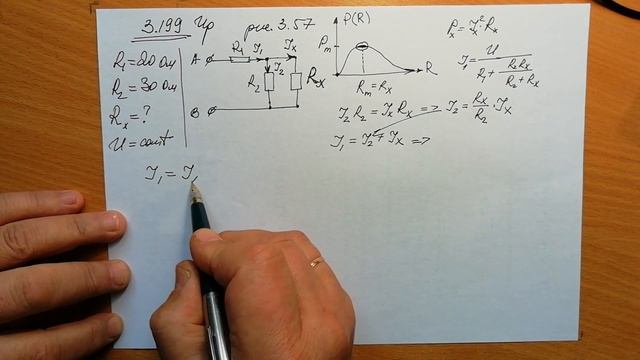 3.199 Ир рис. 3.57
R₁ = 20 Ом
R₂ = 30 Ом
Rₓ = ?
U = const
A R₁ I₁ Iₓ
I₂
R₂ Rₓ
B
P(R)
Pₘ
R
Rₘ = Rₓ
Pₓ = Iₓ² · Rₓ
I₁ = U / (R₁ + R₂Rₓ / (R₂ + Rₓ))
I₂ R₂ = Iₓ Rₓ => I₂ = Rₓ / R₂ · Iₓ
I₁ = I₂ + Iₓ =>
I₁ = I